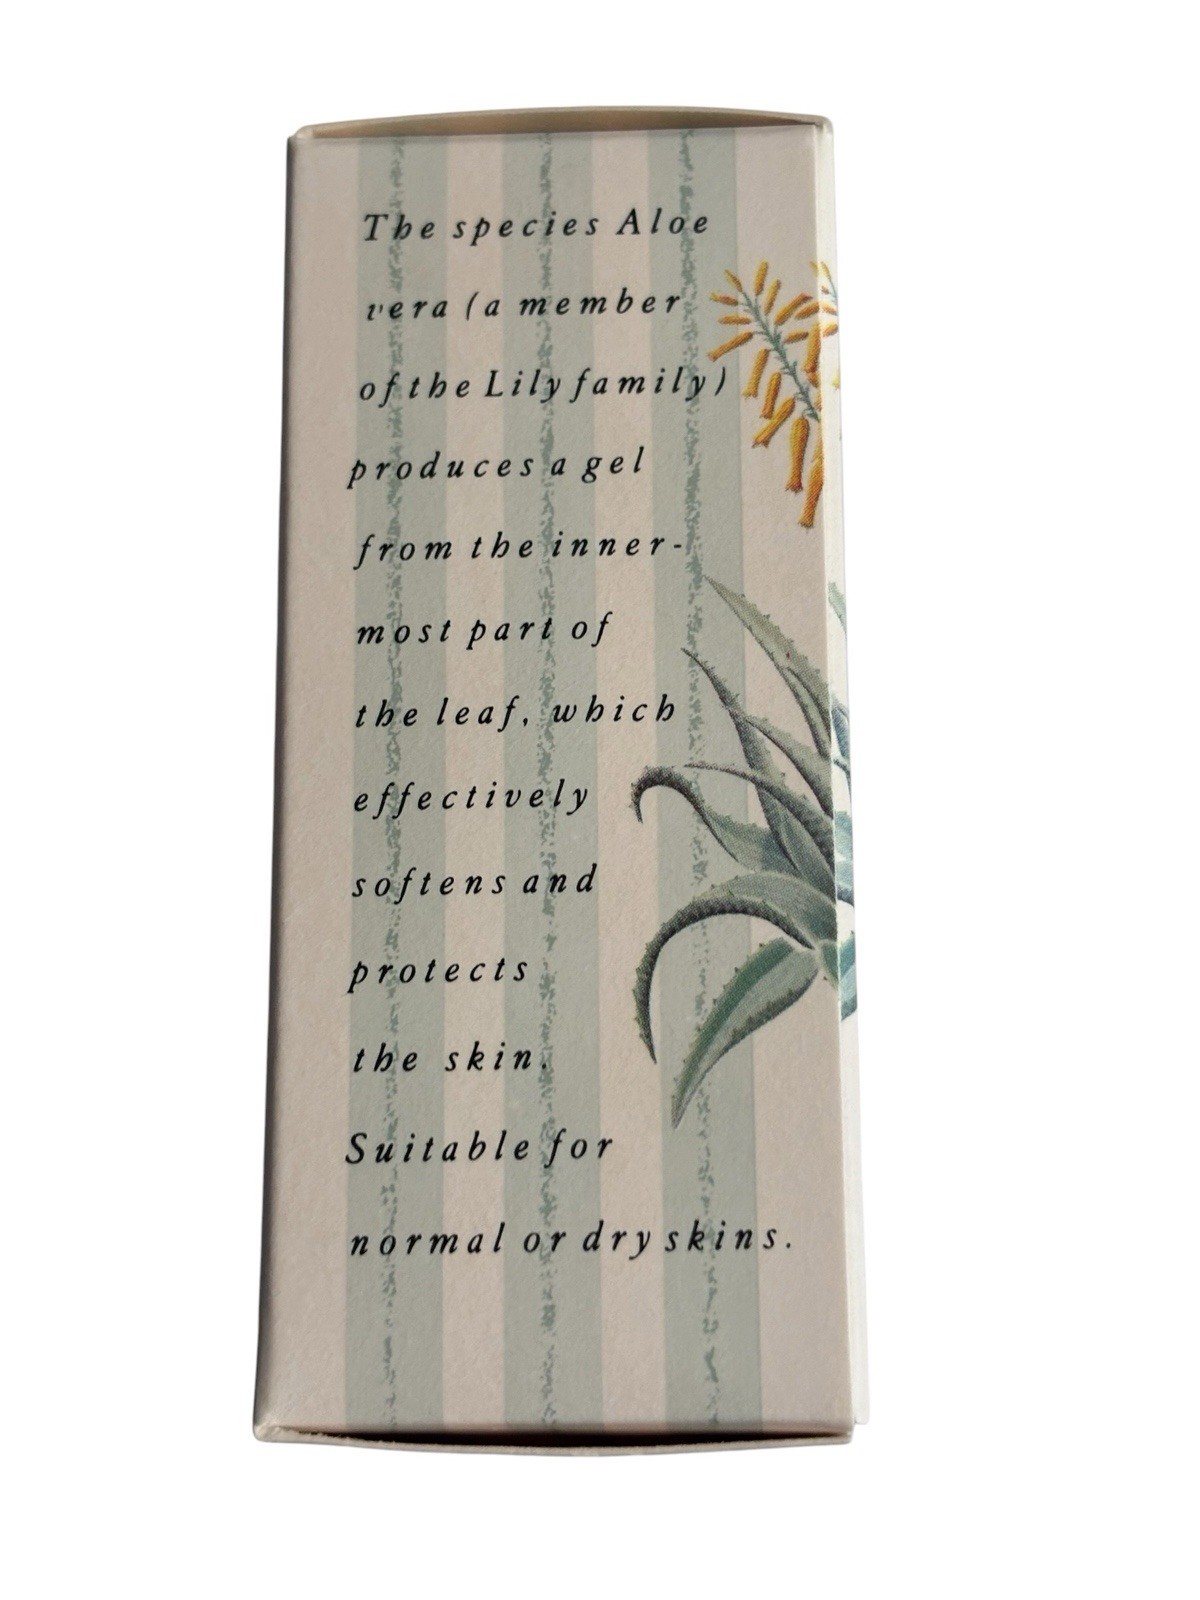 The species Aloe
vera (a member
of the Lily family)
produces a gel
from the inner-
most part of
the leaf, which
effectively
softens and
protects
the skin.
Suitable for
normal or dry skins.